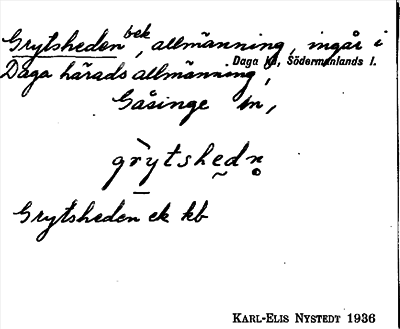 Grytsheden bek, allmänning, ingår i
Daga hd, Södermanlands l.
Daga härads allmänning,
Gåsinge sn,
grỳtshedn̥
Grytsheden ek kb
KARL-ELIS NYSTEDT 1936